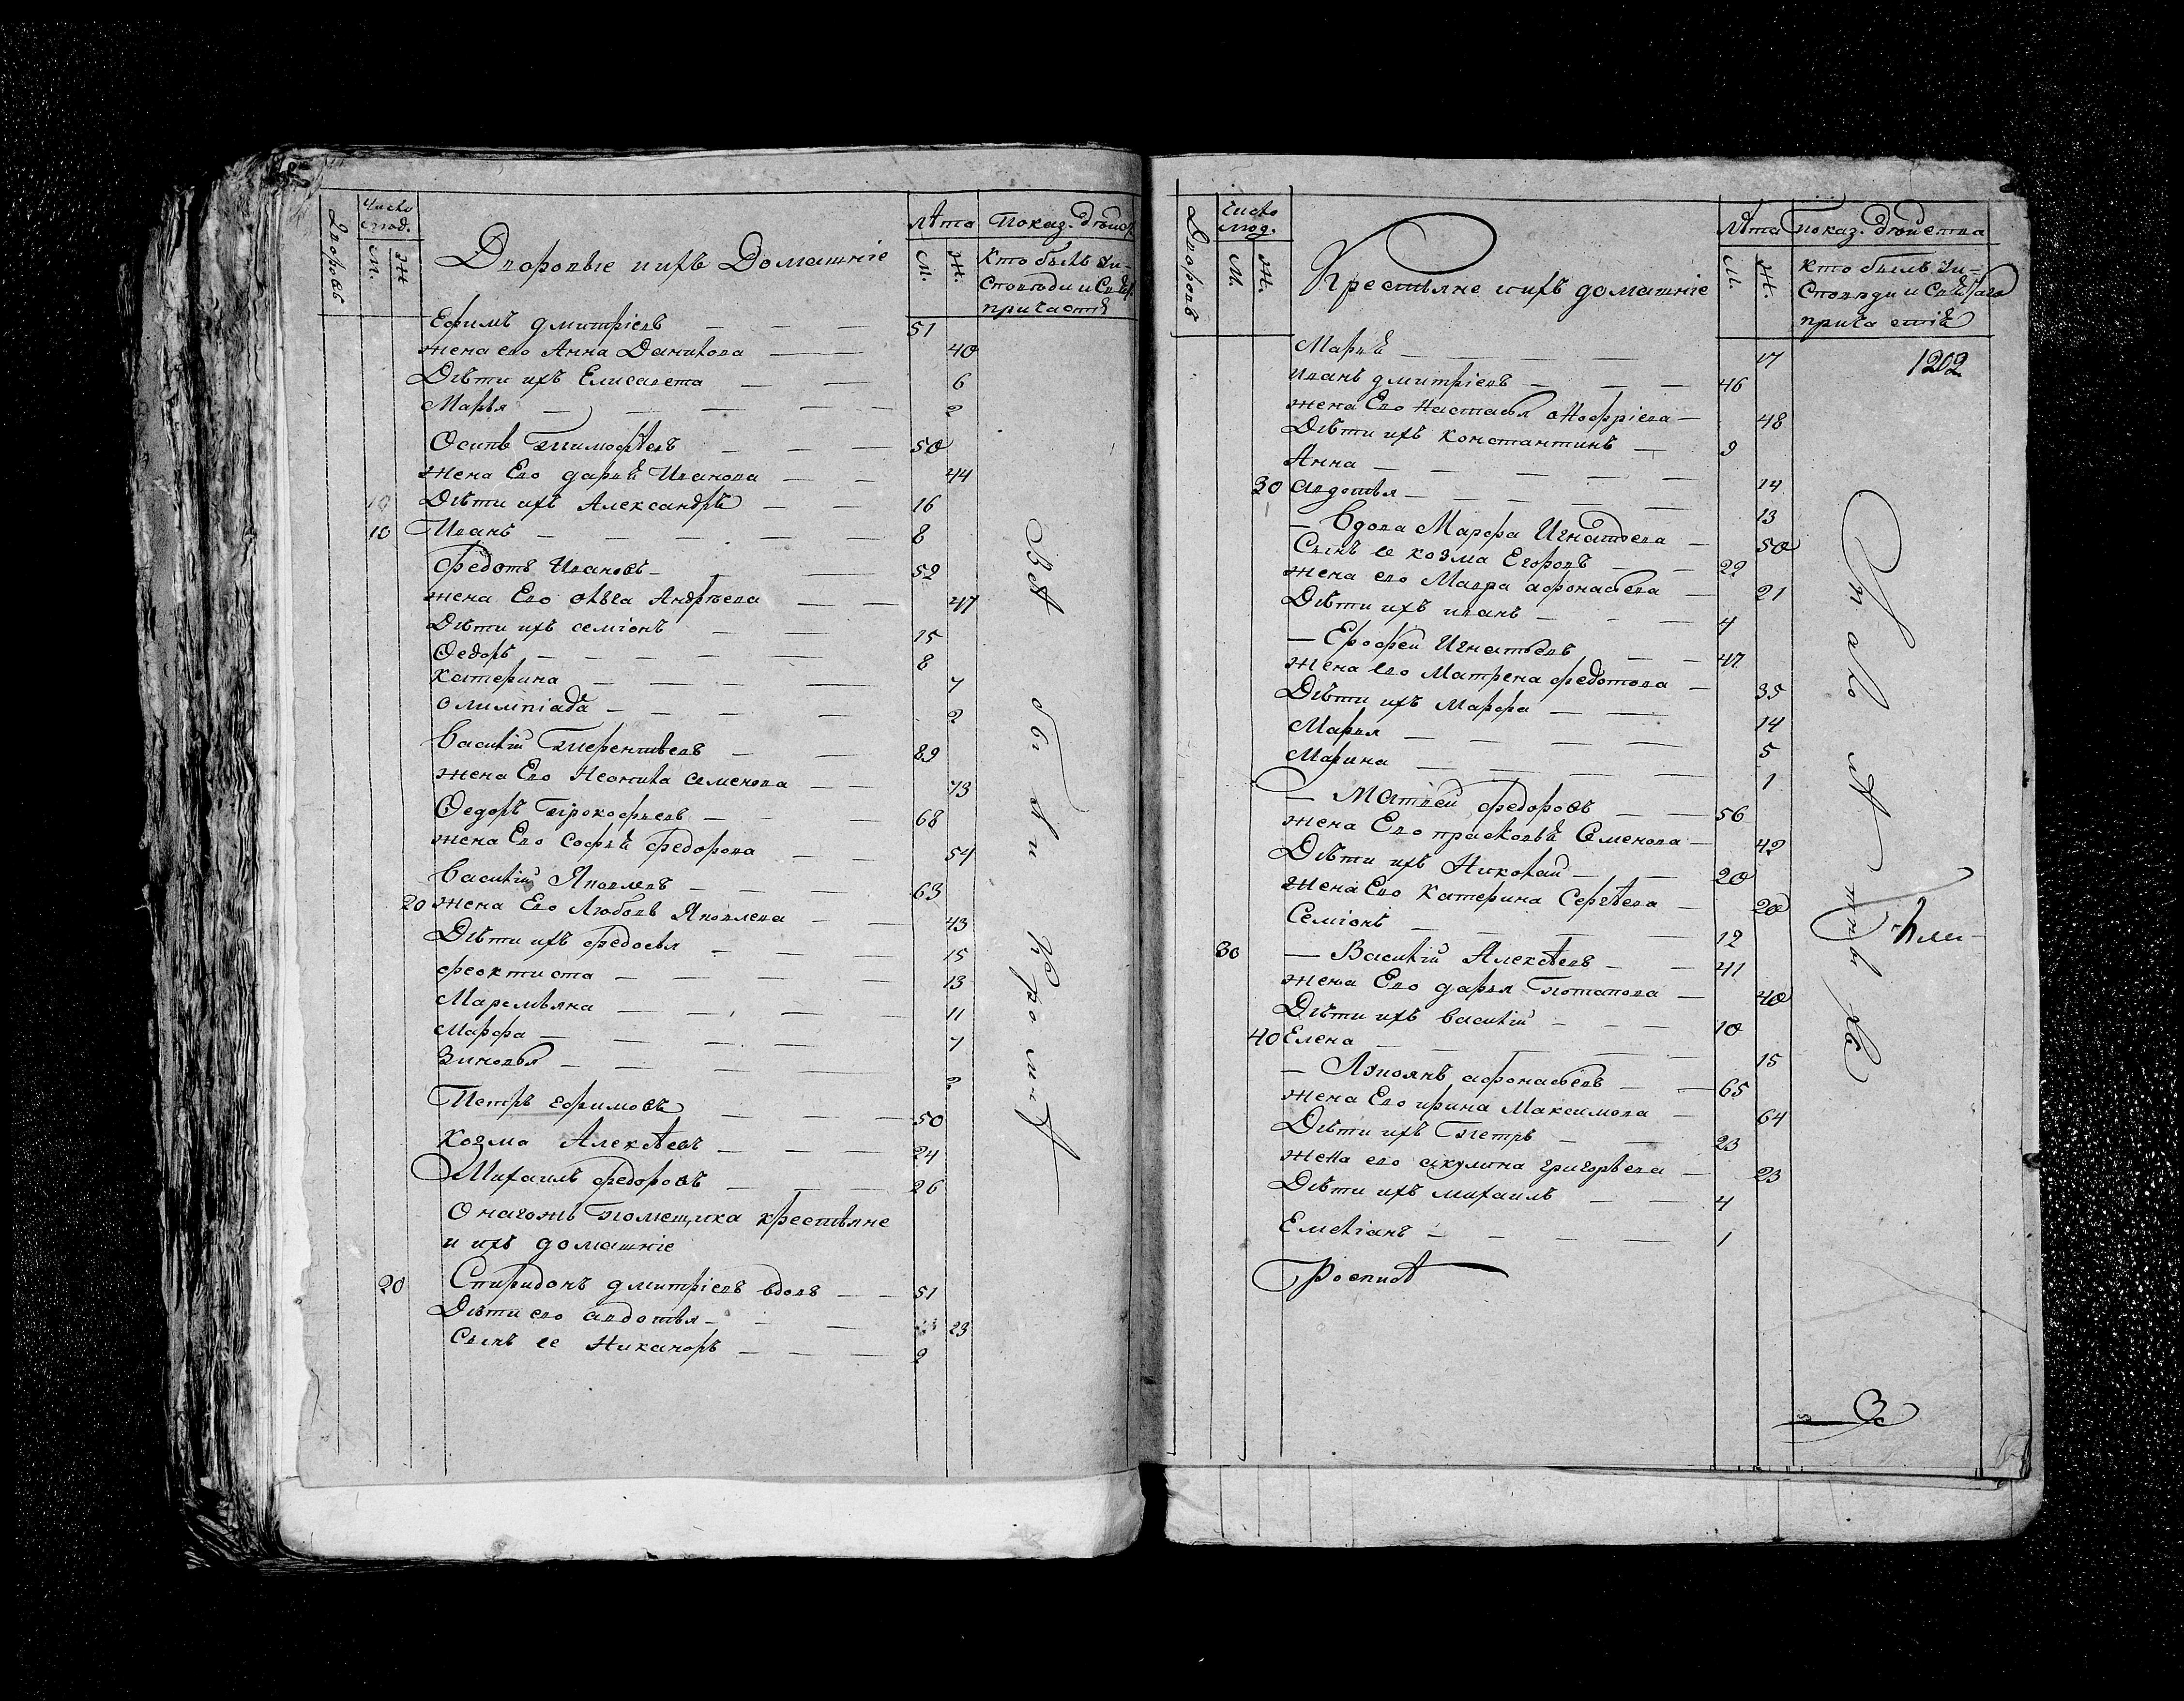 Дворовъ
Число люд.
М.
Ж
Дворовые и ихъ Домашніе
лѣта
М.
Ж.
показ. дѣйс
Кто былъ у и-
споведи и Свя
причастія
Ефимъ дмитріевъ — — — 51
жена ево Анна Данилова — — 40
Дѣти ихъ Елисавета — — 6
Марья — — — — 2
Осипъ Тимофѣевъ — — — 50
жена Ево дарья Иванова — — 44
10 Дѣти ихъ Александръ — — 16
10 Иванъ — — — — — 8
Федотъ Ивановъ — — 52
жена Ево олга Андрѣева — — 47
Дѣти ихъ семіонъ — — 15
Ѳедоръ — — — — — 8
катерина — — — — 7
олимпіада — — — — 2
Василій Терентьевъ — — 89
жена Ево Неонила Семенова — — 73
Ѳедоръ Прокофьевъ — — — 68
жена Ево Софья Федорова — — 54
Василій Яковлевъ — — — 63
20 жена Ево Любовь Яковлева — — 43
Дѣти ихъ федосья — — — 15
феоктиста — — — — 13
Маремьяна — — — — 11
Марфа — — — — 7
Зиновья — — — — 2
Петръ ефимовъ — — — 50
козма Алексѣевъ — — — 24
Михаилъ федоровъ — — — 26
Онагожъ помещика крестьяне
и ихъ домашніе
20 Спиридонъ дмитріевъ вдовъ — — 51
Дѣти ево авдотья — — — 23
Сынъ ее Никаноръ — — — 9
Всѣ были
Дворовъ
Число люд.
М.
Ж.
Крестьяне и ихъ домашніе
лѣта
М.
Ж.
показ. дѣйства
кто былъ у и-
споведи и Свя таго
прича стія
1202
Марья — — — — 17
иванъ дмитріевъ — — — 46
жена Ево Настасья оНофріева — 48
Дѣти ихъ константинъ — 9
Анна — — — — 14
30 авдотья — — — — 13
— Вдова Марфа Игнатьева — 50
Сынъ ее козма Егоровъ — — 22
жена ево Мавра афонасьева — 21
Дѣти ихъ иванъ — — — 4
— Ерофей Игнатьевъ — — 47
жена ево Матрена федотова — 35
Дѣти ихъ Марфа — — 14
Марья — — — — 5
Марина — — — — 1
— Матвей федоровъ — — 56
жена Ево прасковья Семенова — 42
Дѣти ихъ Николай — — 20
жена Ево катерина Сергѣева — 20
Семіонъ — — — — 12
30 — Василій Алексѣевъ — — 41
жена Ево дарья Потапова — 40
Дѣти ихъ василій — — — 10
40 Елена — — — — 15
— афонасьевъ — — 65
жена Ево ирина Максимова — 64
Дѣти ихъ Петръ — — 23
жена ево акулина григорьева — 23
Дѣти ихъ михаилъ — — 4
Емеліанъ — — — — 1